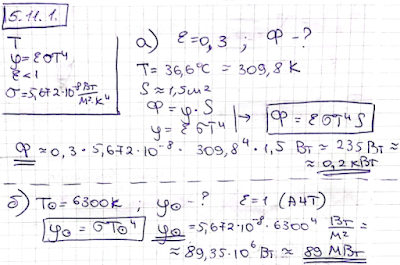 5.11.1.
T
φ=εσT⁴
ε<1
σ=5,672·10⁻⁸ Вт/м²·К⁴
а) ε=0,3 ; Φ-?
T=36,6°C ≈ 309,8 K
S≈1,5м2
Φ=φ·S
φ=εσT⁴
Φ=εσT⁴S
Φ≈0,3·5,672·10⁻⁸·309,8⁴·1,5 Вт≈235 Вт≈
≈0,2 кВт
б) T⊙=6300K ; φ⊙-? ε=1 (АЧТ)
φ⊙=σT⊙⁴
φ⊙=5,672·10⁻⁸·6300⁴ [Вт/м²]=
≈89,35·10⁶ Вт≈89 МВт